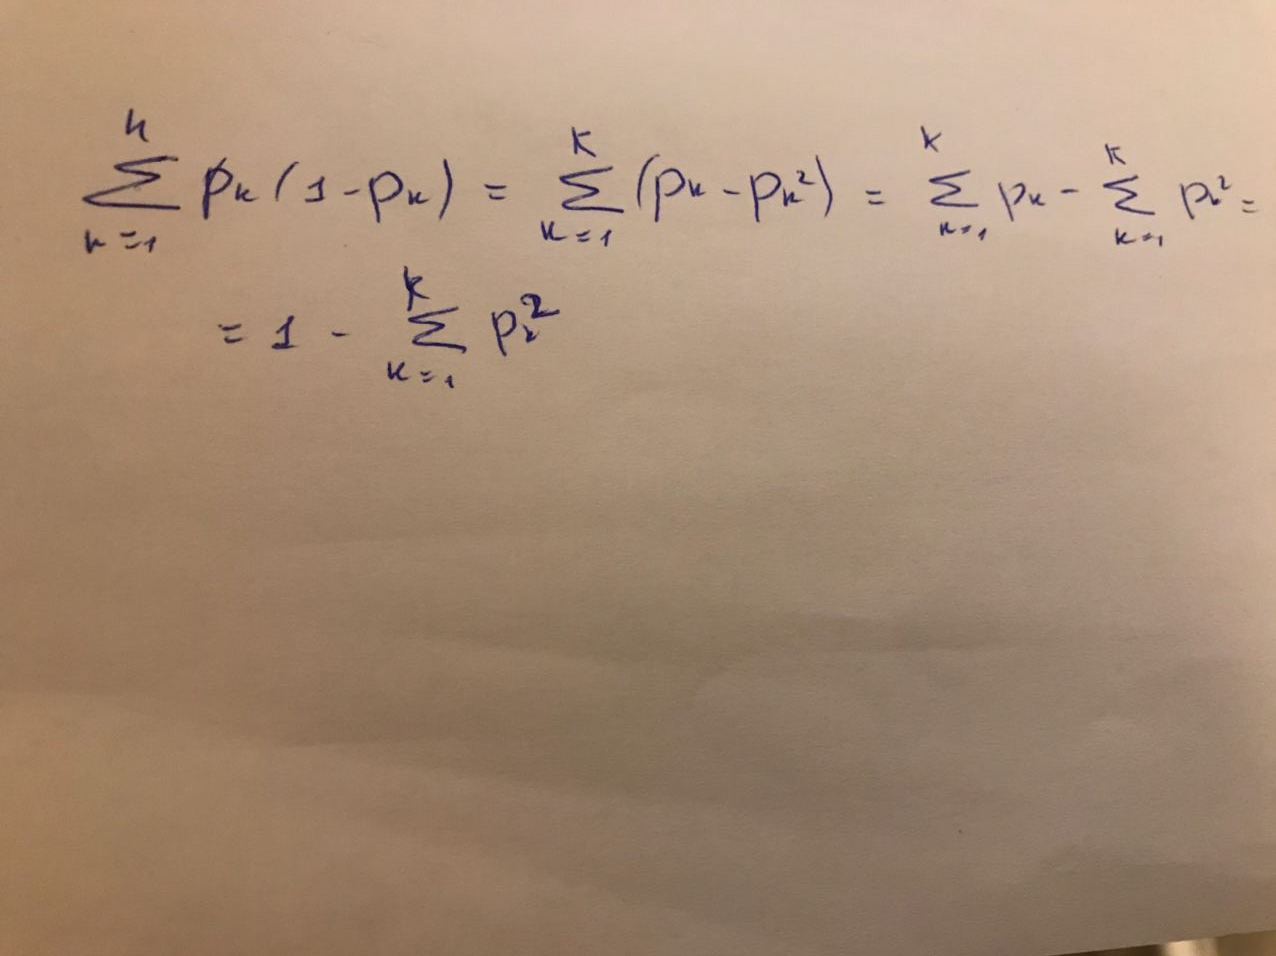 \sum_{k=1}^{K} p_k (1 - p_k) = \sum_{k=1}^{K} (p_k - p_k^2) = \sum_{k=1}^{K} p_k - \sum_{k=1}^{K} p_k^2 =
= 1 - \sum_{k=1}^{K} p_k^2